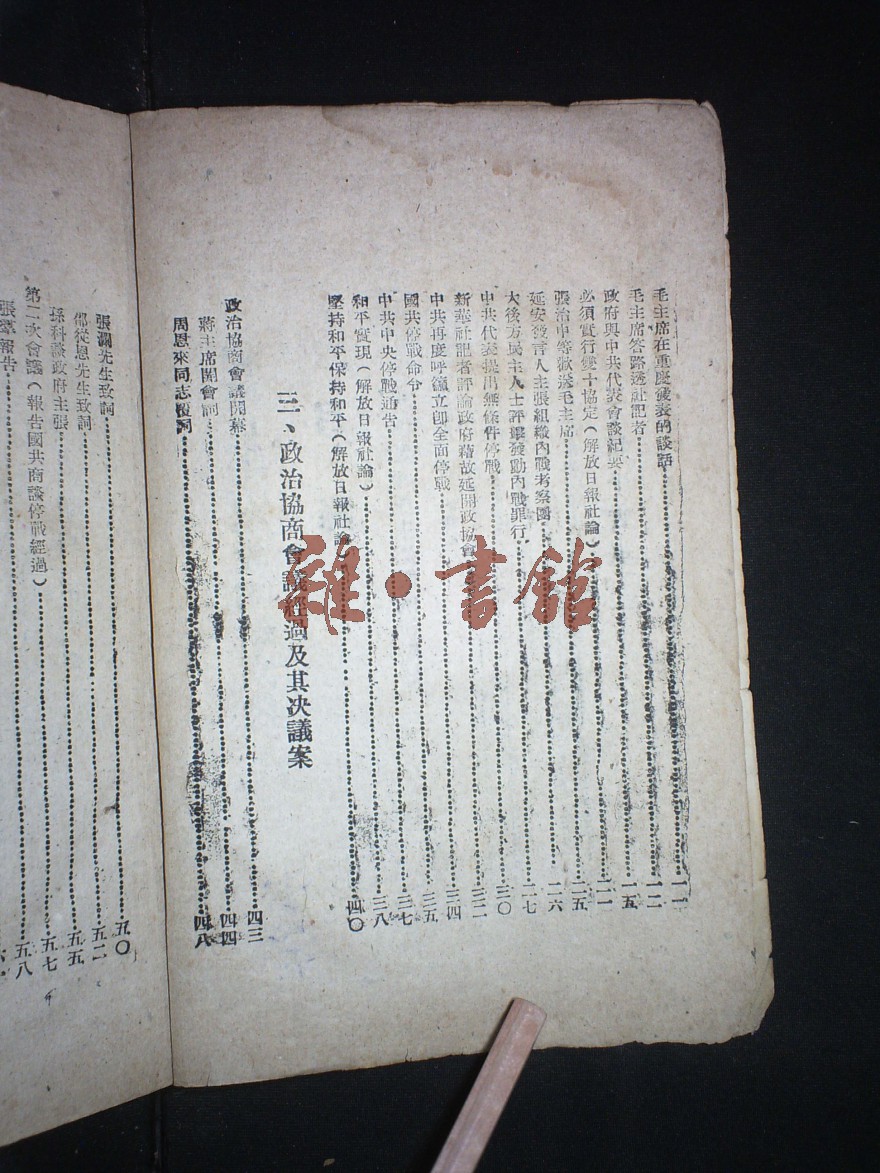 毛主席在重慶發表的談話 一一
毛主席答路透社記者 一二
政府與中共代表會談紀要 一五
必須實行雙十協定（解放日報社論） 二一
張治中等歡送毛主席 二五
延安發言人主張組織內戰考察團 二六
大後方民主人士評擊發動內戰罪行 二七
中共代表提出無條件停戰 三〇
新華社記者評論政府藉故延開政協會 三二
中共再度呼籲立卽全面停戰 三四
國共停戰命令 三五
中共中央停戰通告 三七
和平實現（解放日報社論） 三八
堅持和平保持和平（解放日報社論） 四〇
三、政治協商會議經過及其決議案
政治協商會議開幕 四三
蔣主席開會詞 四四
周恩來同志致詞 四八
張瀾先生致詞 五〇
邵從恩先生致詞 五二
孫科談政府主張 五五
第二次會議（報告國共商談停戰經過） 五七
張羣報告 五八
雜·書館